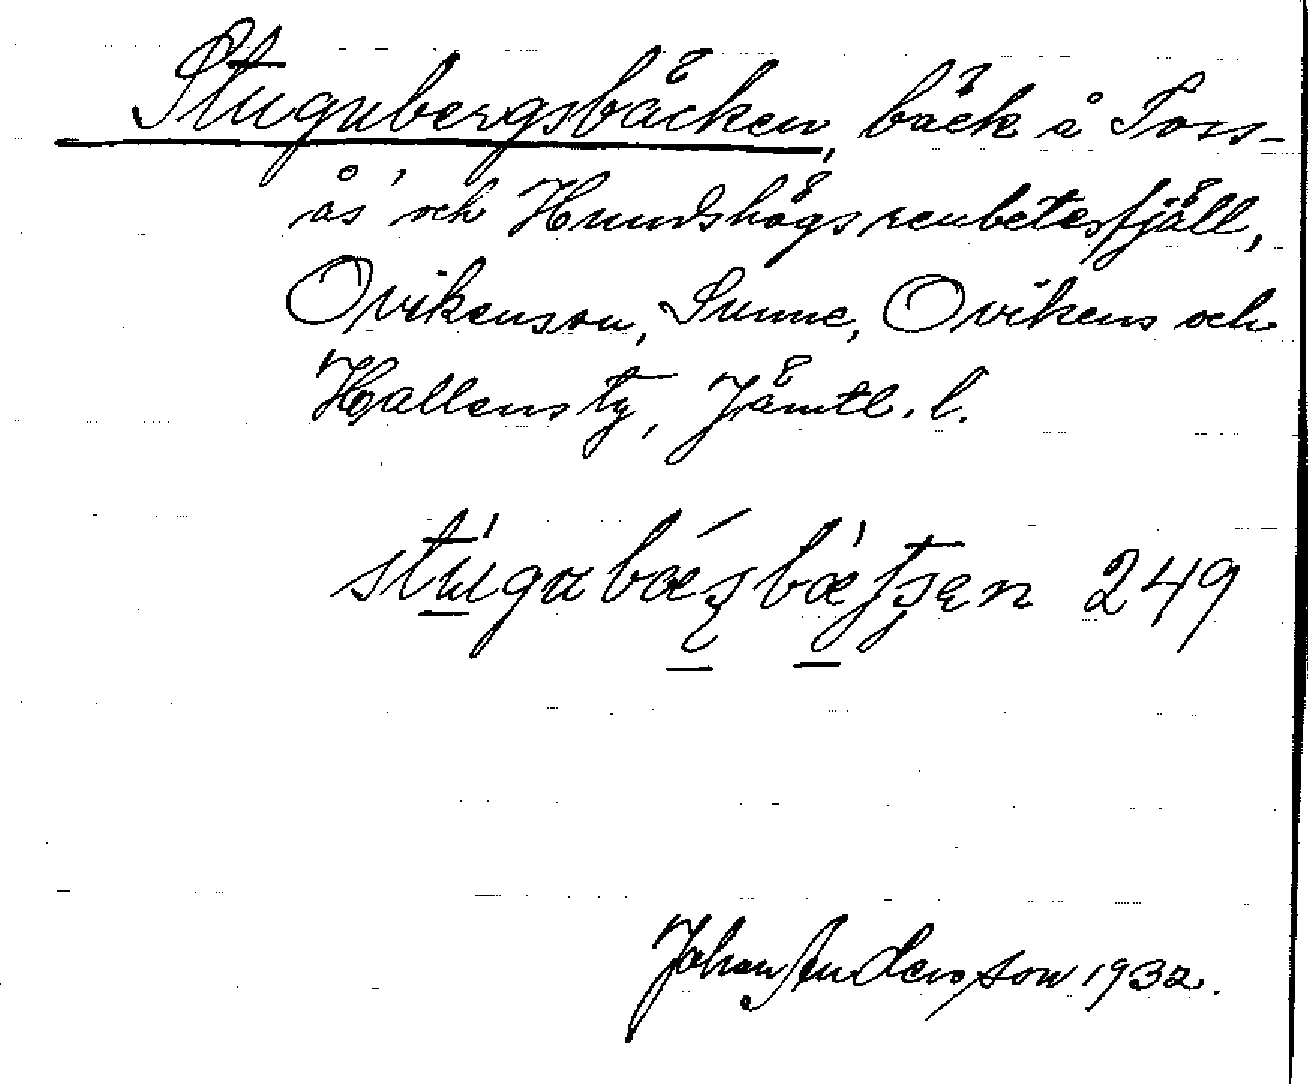 Stugubergsbäcken, bäck å Toss-
ås och Hundshögs renbetesfjäll,
Ovikenson, Sunne, Ovikens och
Hallens tg, Jämtl. l.
249
Johan Andersson 1932.